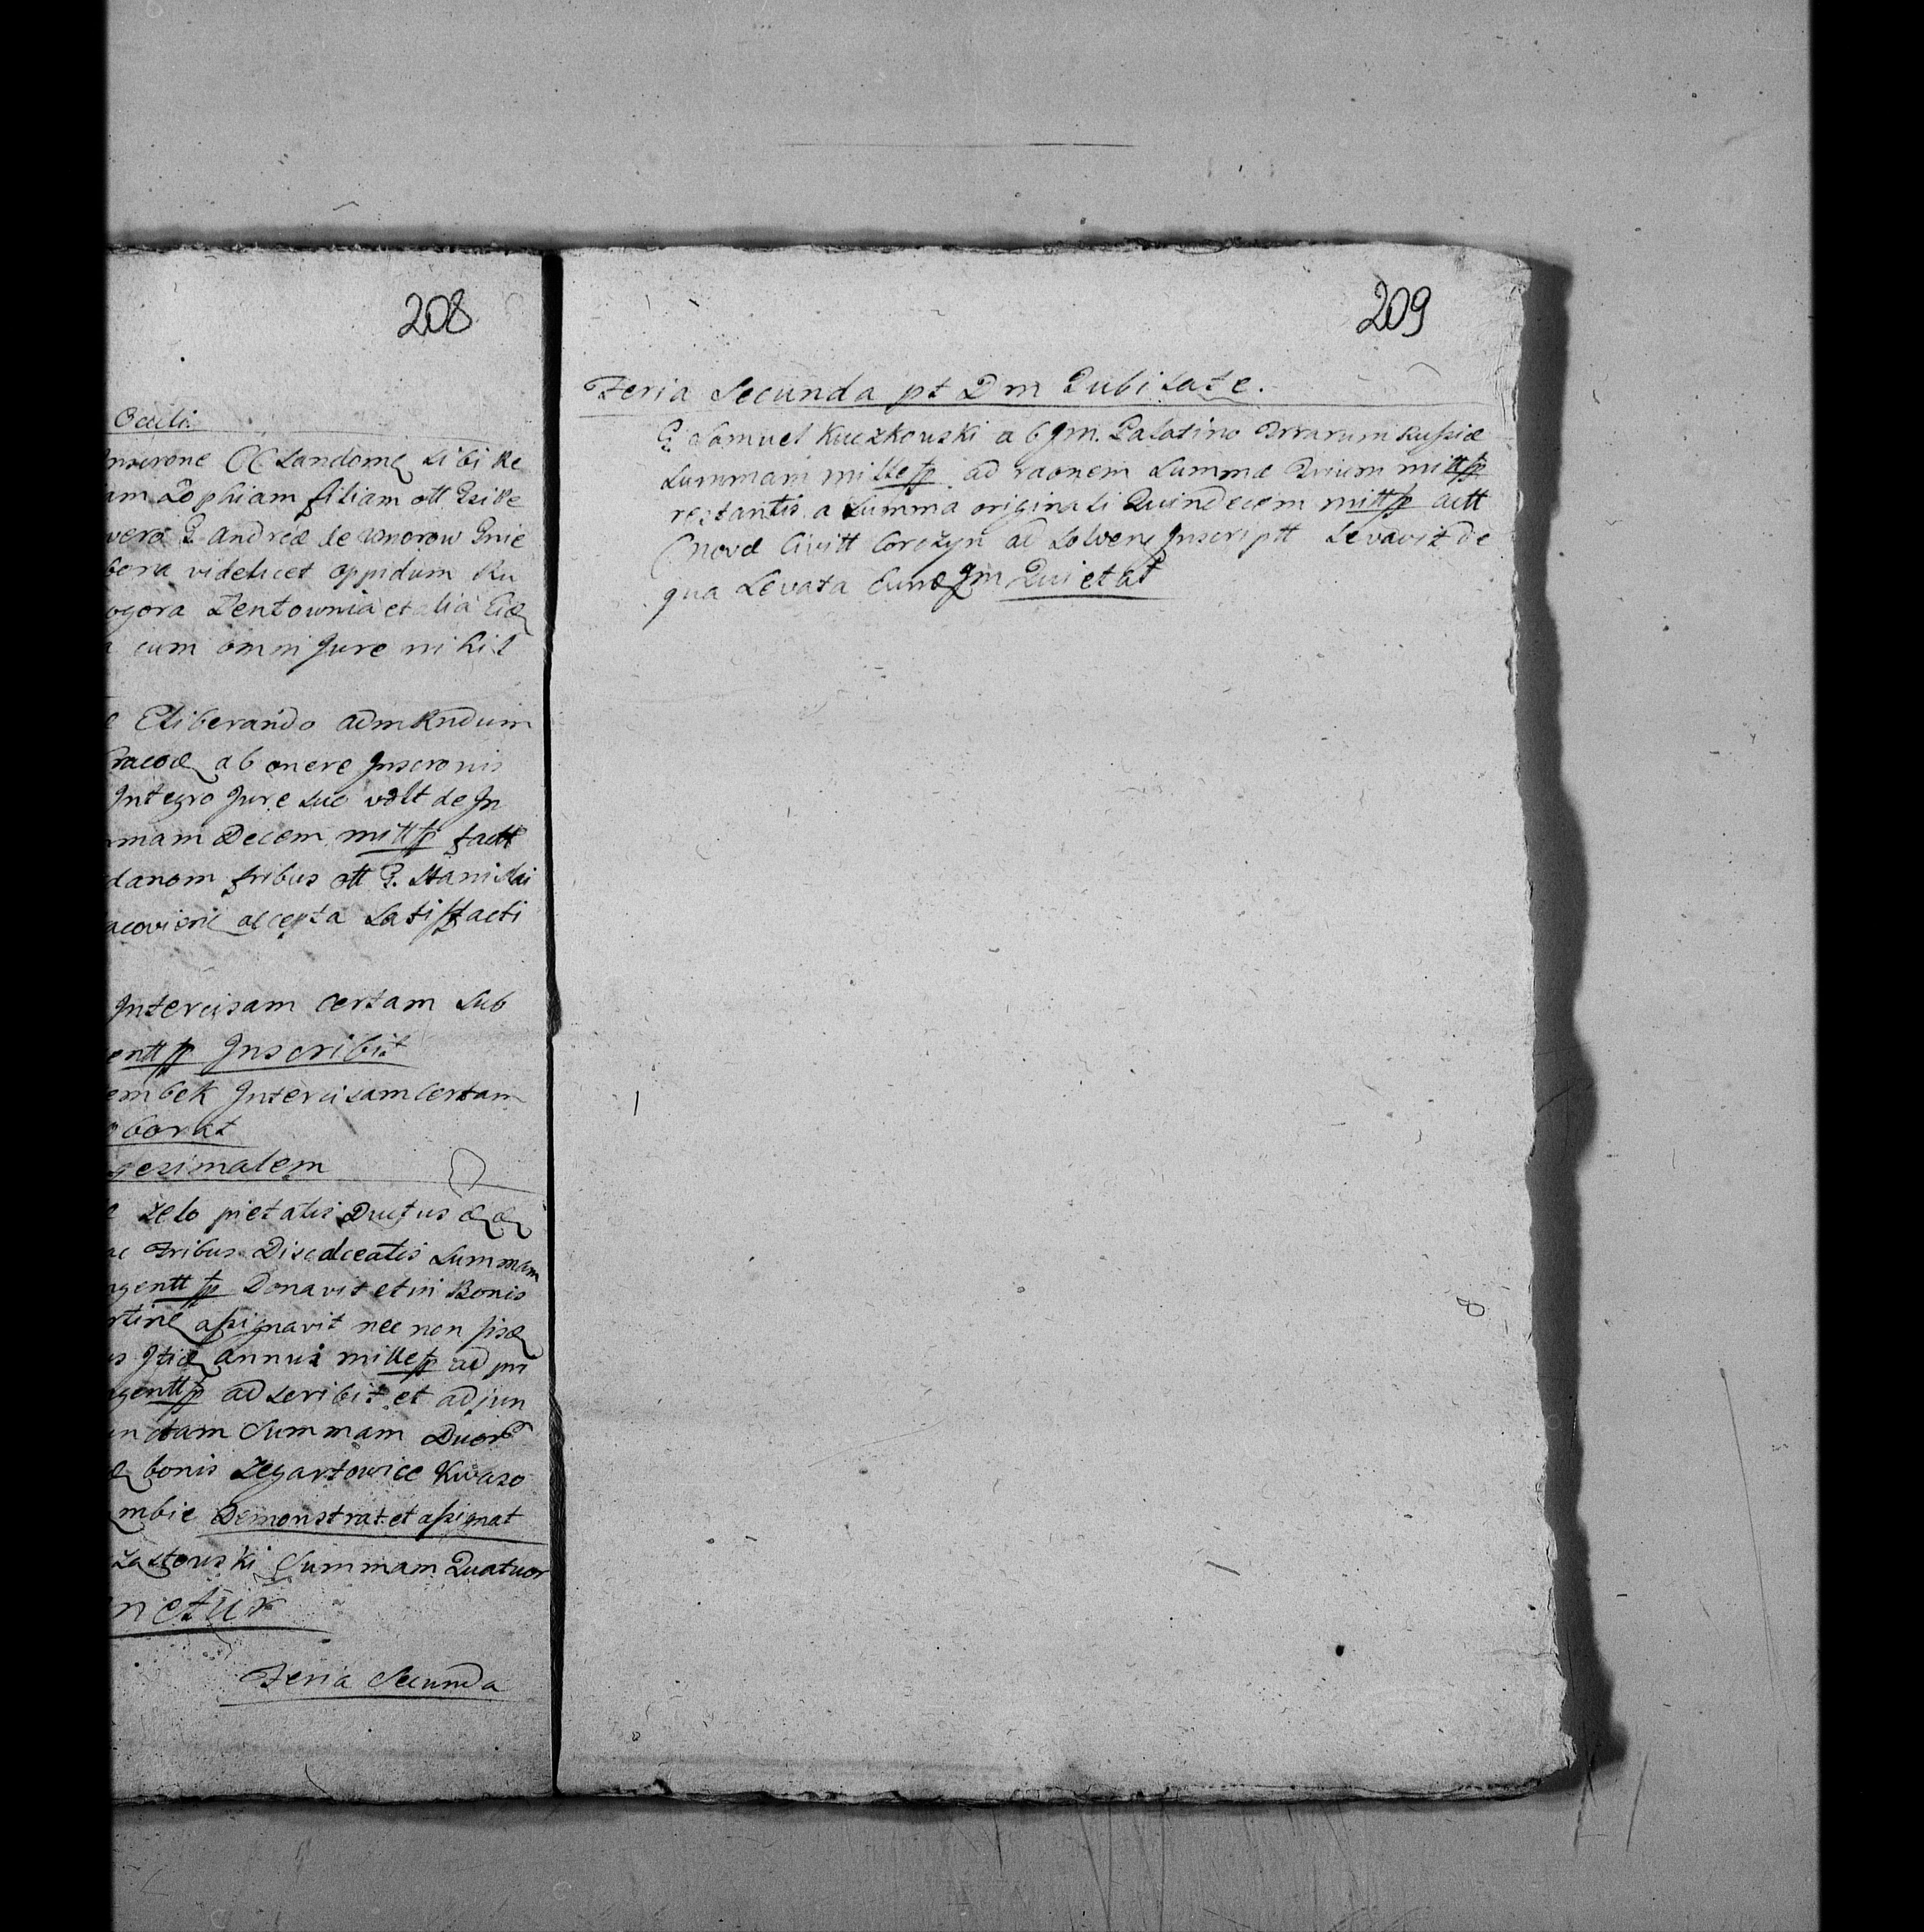 208
Oculi
Inscrone OC Sandomę sibi Re
am Zophiam filiam ott Gsi Re
vero G. Andreæ de Wnorow Gnie
bona videlicet oppidum Ru
ogora Zentownia et alia Eiæ
cum omni Jure nihil
Eliberando admRndum
ab onere Inscronis
Integro Jure suo volt de In
mam Decem mitt fp fact
danom fribus ott G. Stanislai
acoviens accepta Satisfacti
Intercisam certam sub
entt fp Inscribit
embek Intercisam certam
oborat
gesimalem
zelo pietatis Ductus
ac Fribus Discalceatis Summam
ngentt fp Donavit et in Bonis
assignavit nec non
annui mille fp ad
ngentt fp adscribit et adjun
nctam Summam Duor
bonis Zegartowice Kwaso
mbie Demonstrat et assignat
Summam Quatuor
nctur
Feria Secunda
209
Feria Secunda pt Dm Jubilate.
G. Samuel Kuczkowski ab Jm. Palatino Trrarum Russiæ
Summam mille fp ad raonem Summæ Trium mitt fp
restantis a Summa originali Quindecem mitt fp actt
Novæ Civitt Corczyn ad Solven Inscriptt Levavit de
qua Levata Eund Jm Quietat